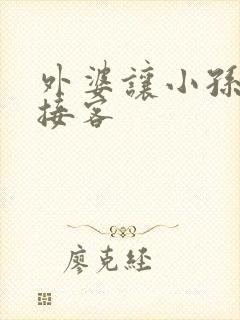 外婆讓小孫
接客
廖克經